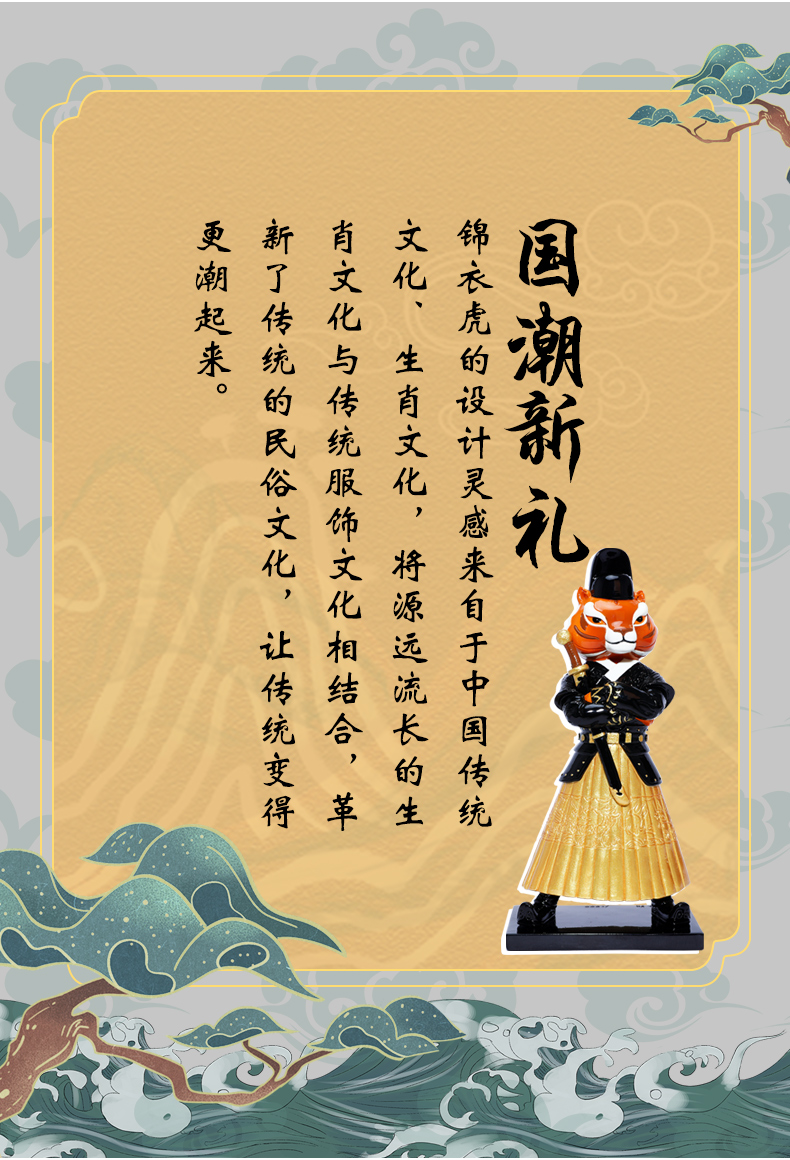 国潮新礼
锦衣虎的设计灵感来自于中国传统
文化、生肖文化，将源远流长的生
肖文化与传统服饰文化相结合，革
新了传统的民俗文化，让传统变得
更潮起来。